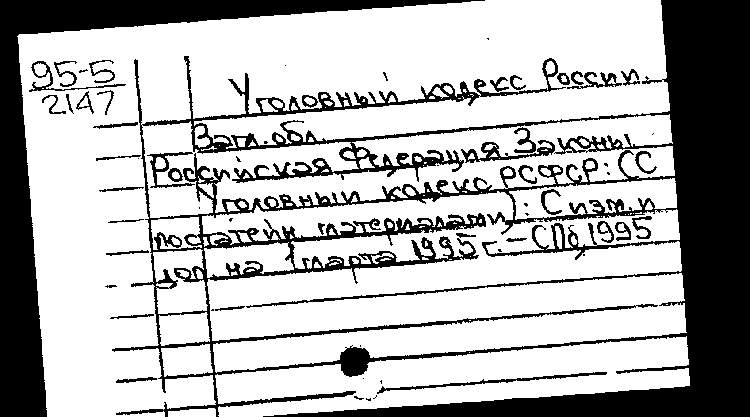 95-5
2147
Уголовный кодекс России.
Загл. обл.
Российская Федерация. Законы
Уголовный кодекс РСФСР: (С
постатейн. материалами): С изм. и
доп. на 1 марта 1995 г. – СПб, 1995